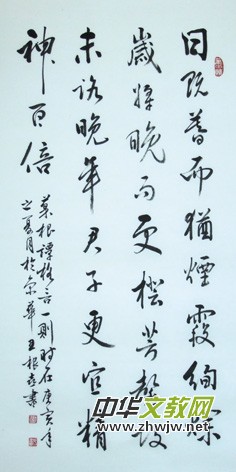 日既暮而猶煙霞絢
歲將晚而更橙芳馨故
末路晚年君子更宜精
神百倍
菜根譚格言一則時在庚寅年
之夏月於京華王根書
中华文教网
www.zhwjw.net